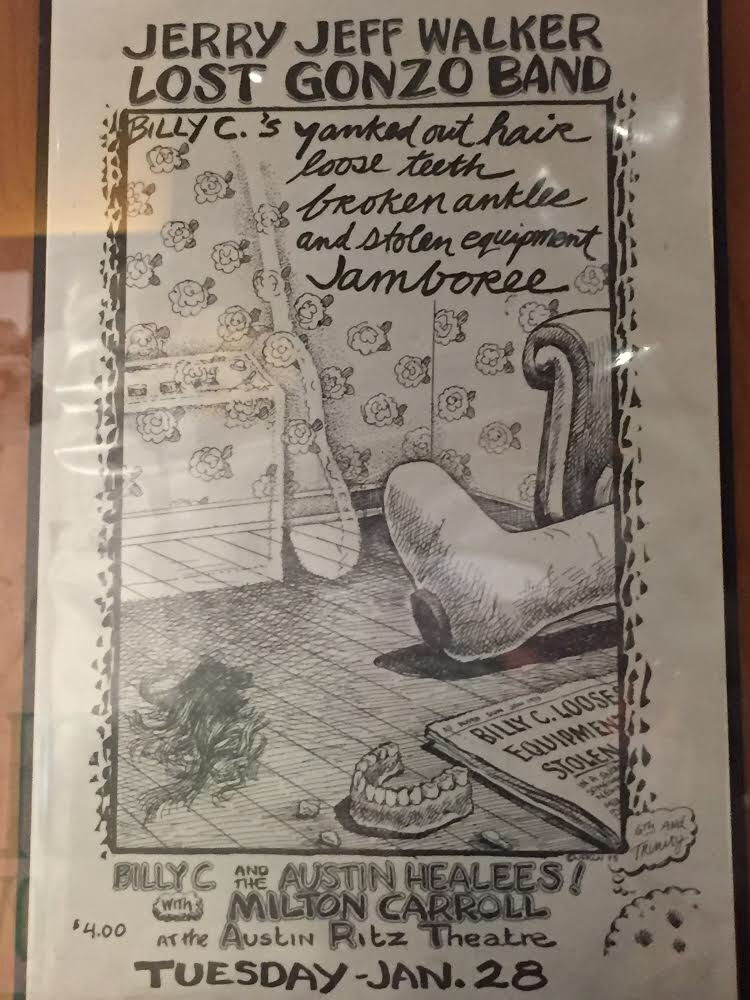 JERRY JEFF WALKER
LOST GONZO BAND
BILLY C.'s yanked out hair
loose teeth
broken ankles
and stolen equipment
Jamboree
BILLY C. LOOSES
EQUIPMENT
STOLEN
6TH AND
TRINITY
BILLY C AND THE AUSTIN HEALEES!
WITH MILTON CARROLL
$4.00
AT the AUSTIN RITZ THEATRE
TUESDAY-JAN. 28